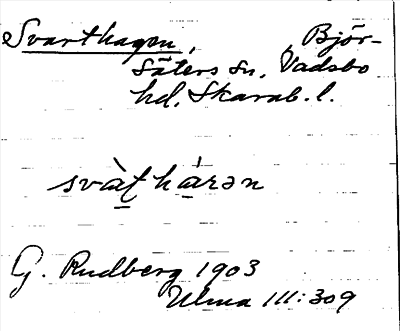 Svarthagen, Björ-
säters sn, Vadsbo
hd, Skarab. l.
svàṯ há̱rən
G. Rudberg 1903
Ulma 111:309